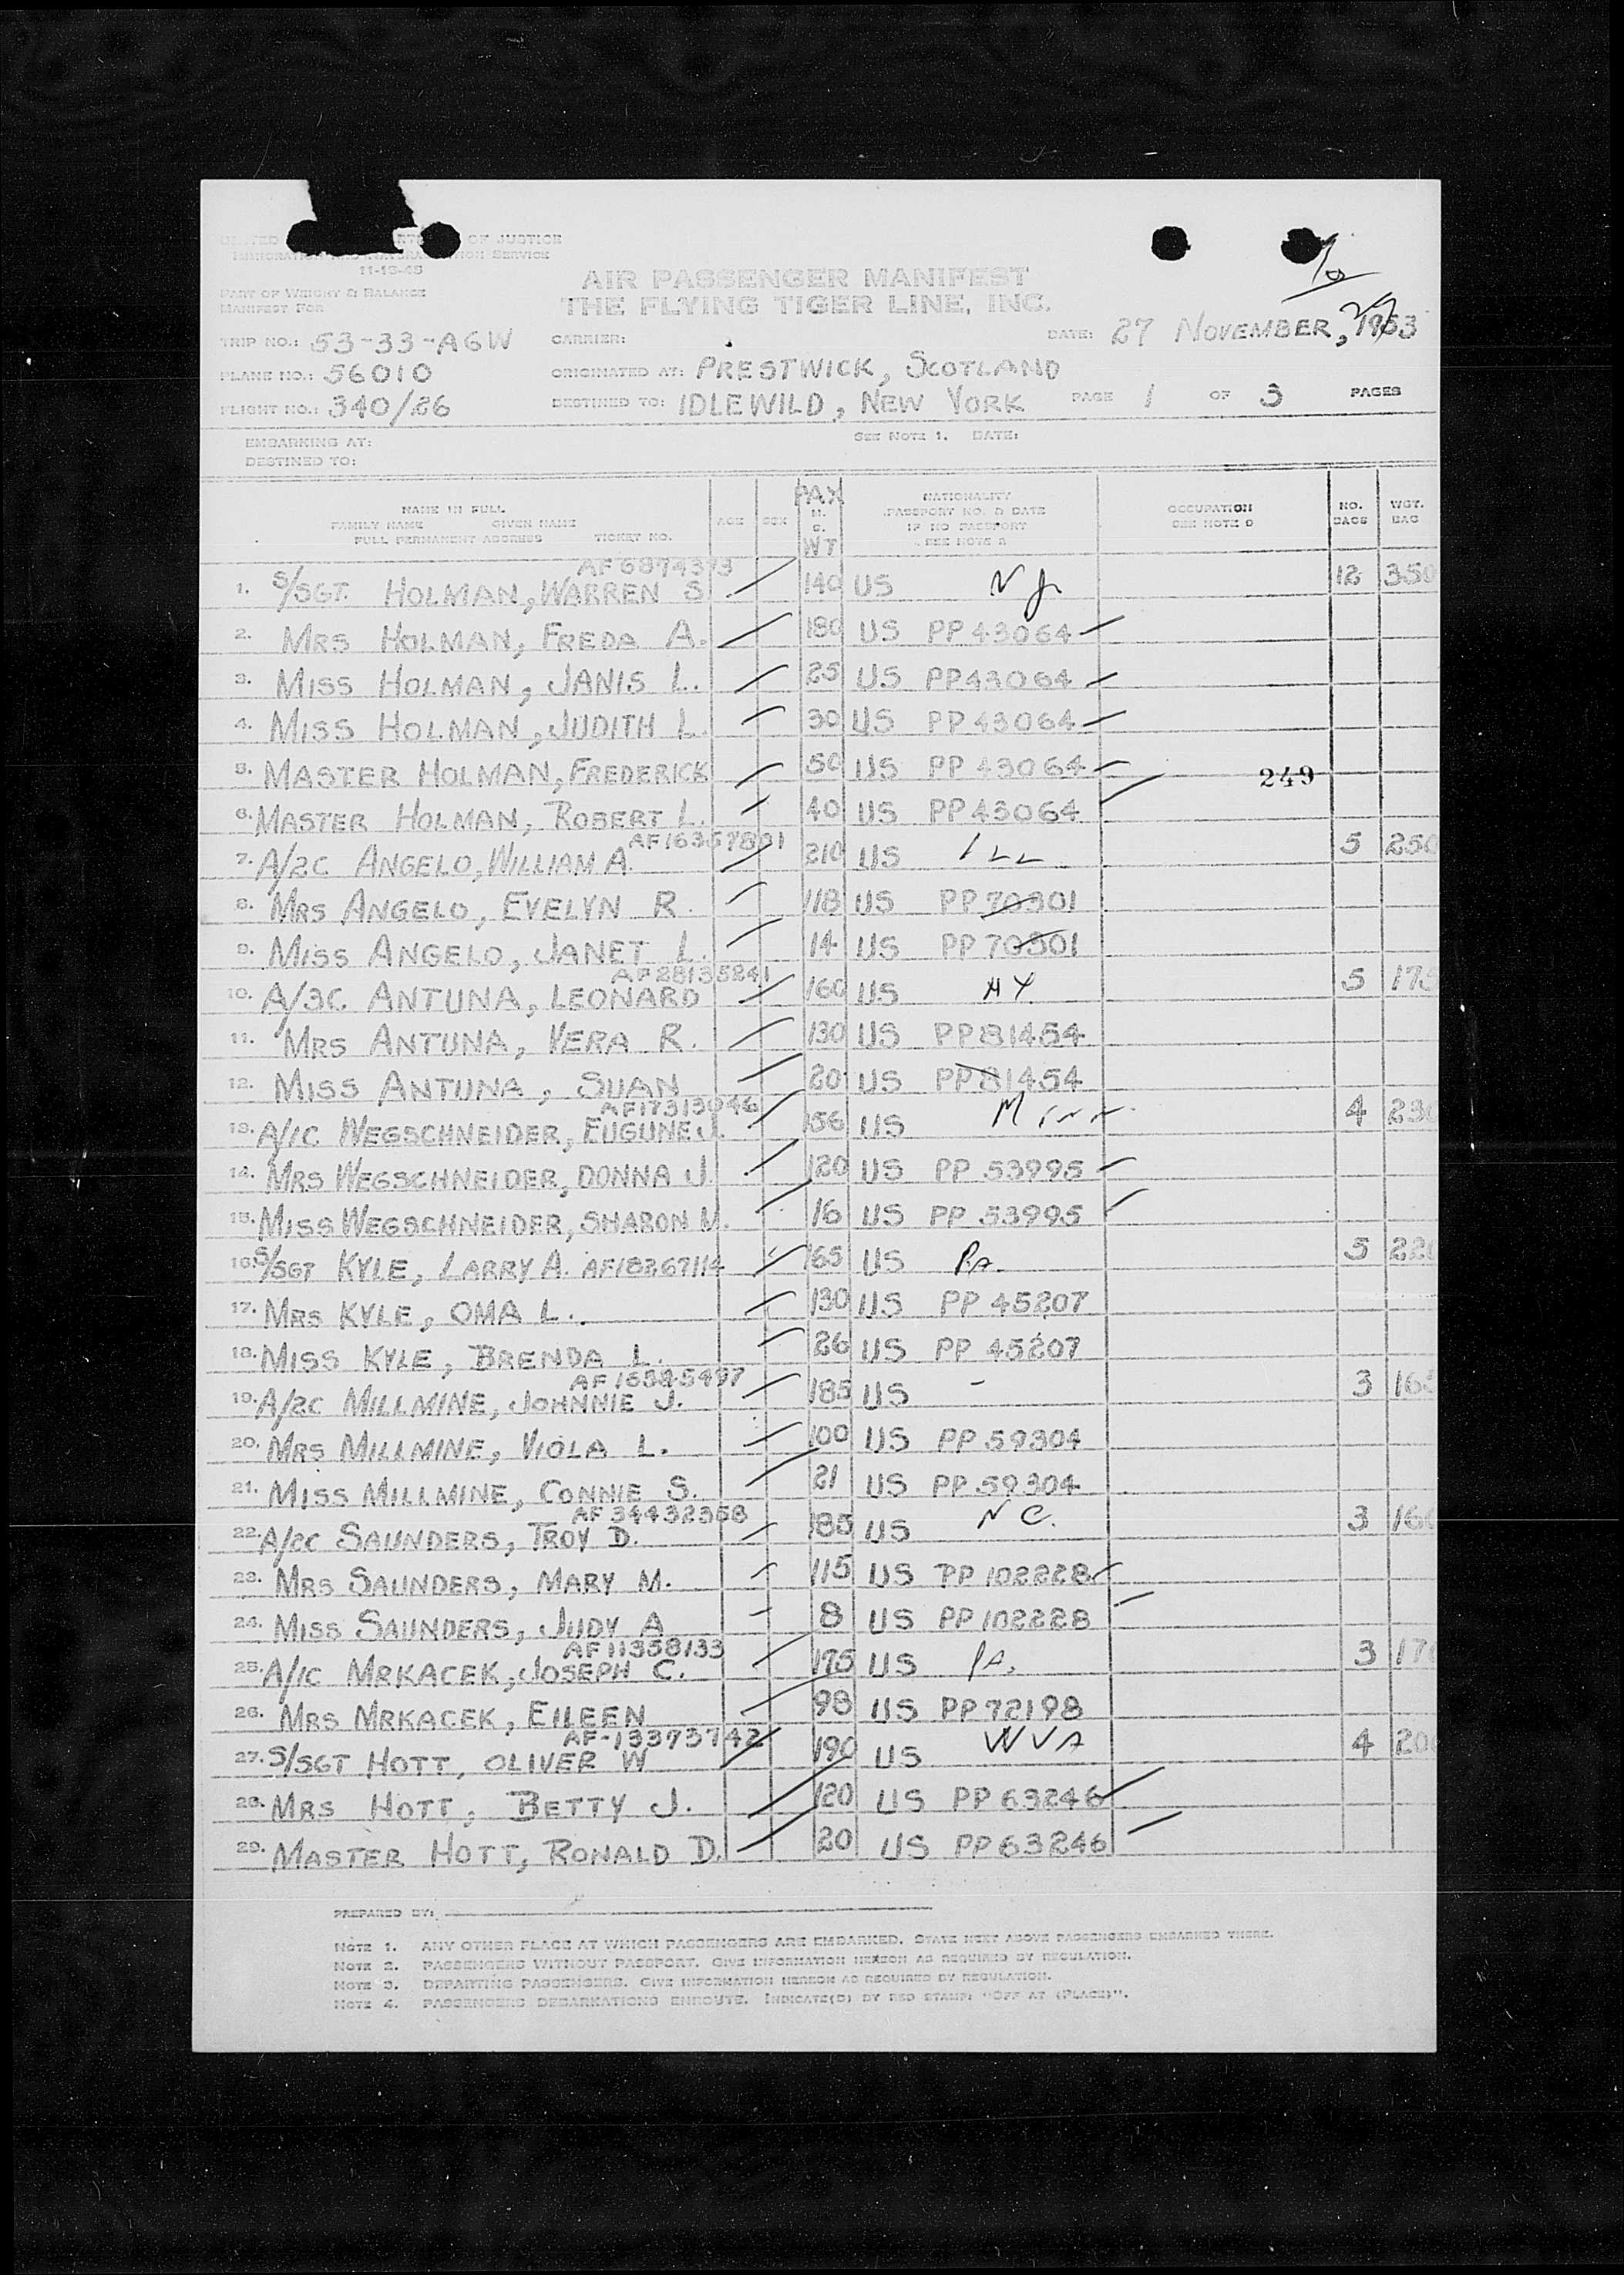 UNITED OF JUSTICE
IMMIGRATION AND NATURALIZATION SERVICE
11-15-45
AIR PASSENGER MANIFEST
PART OF WEIGHT & BALANCE
MANIFEST FOR
THE FLYING TIGER LINE, INC.
TRIP NO.: 53-33-AGW CARRIER: DATE: 27 NOVEMBER, 1953
PLANE NO.: 56010 ORIGINATED AT: PRESTWICK, SCOTLAND
FLIGHT NO.: 340/26 DESTINED TO: IDLEWILD, NEW YORK PAGE 1 OF 3 PAGES
EMBARKING AT: SEE NOTE 1. DATE:
DESTINED TO:
NAME IN FULL
FAMILY NAME GIVEN NAME
FULL PERMANENT ADDRESS TICKET NO. AGE SEX PAX M. S. WT NATIONALITY PASSPORT NO. & DATE IF NO PASSPORT SEE NOTE 2 OCCUPATION SEE NOTE 3 NO. BAGS WGT. BAG
AF 6874373
1. S/SGT. HOLMAN, WARREN S. 140 US NJ 12 350
2. MRS HOLMAN, FREDA A. 180 US PP 43064
3. MISS HOLMAN, JANIS L. 25 US PP 43064
4. MISS HOLMAN, JUDITH L. 30 US PP 43064
5. MASTER HOLMAN, FREDERICK 50 US PP 43064
249
6. MASTER HOLMAN, ROBERT L. 40 US PP 43064
AF 16357801
7. A/2C ANGELO, WILLIAM A. 210 US ILL 5 250
8. MRS ANGELO, EVELYN R. 118 US PP 70301
9. MISS ANGELO, JANET L. 14 US PP 70301
AF 28135241
10. A/3C ANTUNA, LEONARD 160 US NY 5 175
11. MRS ANTUNA, VERA R. 130 US PP 81454
12. MISS ANTUNA, SUAN 20 US PP 81454
AF 17313046
13. A/1C WEGSCHNEIDER, EUGUNE J. 156 US Minn 4 230
14. MRS WEGSCHNEIDER, DONNA J. 120 US PP 53995
15. MISS WEGSCHNEIDER, SHARON M. 16 US PP 53995
16. S/SGT KYLE, LARRY A. AF18267114 165 US PA. 5 220
17. MRS KYLE, OMA L. 130 US PP 45207
18. MISS KYLE, BRENDA L. 26 US PP 45207
AF 16385497
19. A/2C MILLMINE, JOHNNIE J. 185 US - 3
20. MRS MILLMINE, VIOLA L. 100 US PP 59304
21. MISS MILLMINE, CONNIE S. 21 US PP 59304
AF 34432358
22. A/2C SAUNDERS, TROY D. 185 US NC. 3 160
23. MRS SAUNDERS, MARY M. 115 US PP 102228
24. MISS SAUNDERS, JUDY A 8 US PP 102228
AF 11358133
25. A/1C MRKACEK, JOSEPH C. 175 US PA. 3 170
26. MRS MRKACEK, EILEEN 98 US PP 72198
AF-13373742
27. S/SGT HOTT, OLIVER W 190 US W VA 4 200
28. MRS HOTT, BETTY J. 120 US PP 63246
29. MASTER HOTT, RONALD D. 20 US PP 63246
PREPARED BY:
NOTE 1. ANY OTHER PLACE AT WHICH PASSENGERS ARE EMBARKED. STATE NEXT ABOVE PASSENGERS EMBARKED THERE.
NOTE 2. PASSENGERS WITHOUT PASSPORT. GIVE INFORMATION HEREON AS REQUIRED BY REGULATION.
NOTE 3. DEPARTING PASSENGERS. GIVE INFORMATION HEREON AS REQUIRED BY REGULATION.
NOTE 4. PASSENGERS DEBARKATIONS ENROUTE. INDICATE(D) BY RED STAMP: "OFF AT (PLACE)".